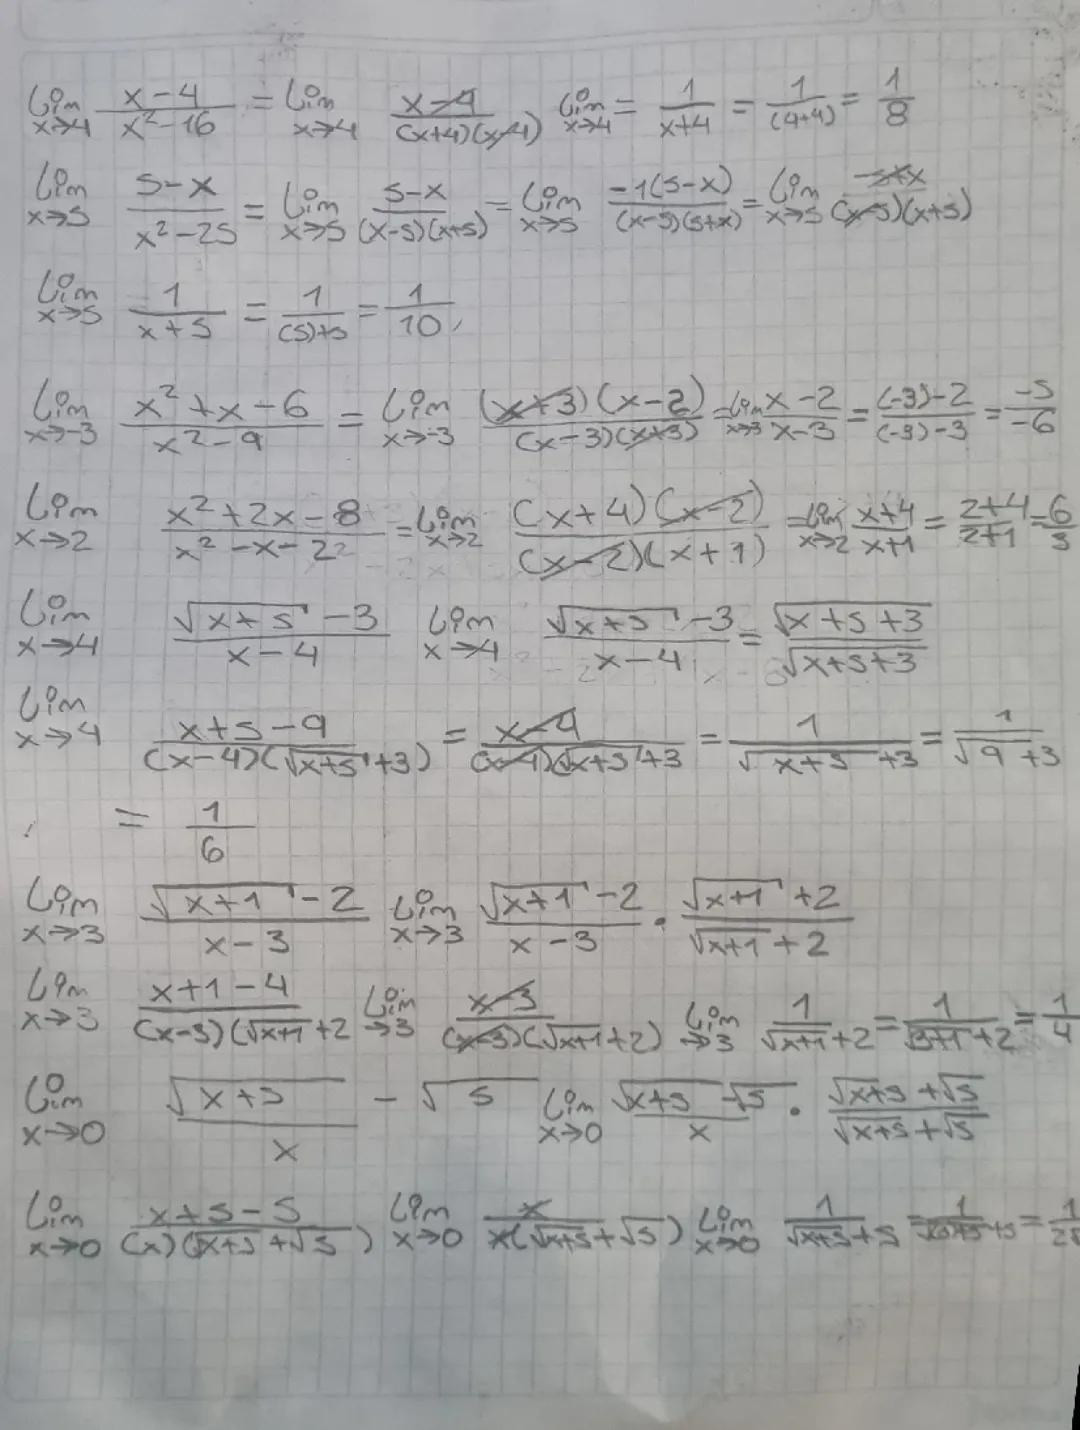 Lim x→4 x-4/x²-16 = Lim x→4 x-4/(x+4)(x-4) Lim x→4 = 1/x+4 = 1/(4+4) = 1/8
Lim x→5 5-x/x²-25 = Lim x→5 5-x/(x-5)(x+5) = Lim x→5 -1(5-x)/(x-5)(5+x) = Lim x→5 -5+x/(x-5)(x+5)
Lim x→5 1/x+5 = 1/(5)+5 = 1/10,
Lim x→-3 x²+x-6/x²-9 = Lim x→-3 (x+3)(x-2)/(x-3)(x+3) = Lim x→3 x-2/x-3 = (-3)-2/(-3)-3 = -5/-6
Lim x→2 x²+2x-8/x²-x-2 = Lim x→2 (x+4)(x-2)/(x-2)(x+1) = Lim x→2 x+4/x+1 = 2+4/2+1 = 6/3
Lim x→4 √x+5 -3/x-4 Lim x→4 √x+5 -3/x-4 = √x+5+3/√x+5+3
Lim x→4 x+5-9/(x-4)(√x+5 +3) = x-4/(x-4)(√x+5 +3 = 1/√x+5 +3 = 1/√9 +3
= 1/6
Lim x→3 √x+1 -2/x-3 Lim x→3 √x+1 -2/x-3 · √x+1 +2/√x+1 +2
Lim x→3 x+1-4/(x-3)(√x+1 +2 Lim →3 x-3/(x-3)(√x+1 +2) Lim →3 1/√x+1 +2 = 1/√3+1 +2 = 1/4
Lim x→0 √x+5 - √5/x Lim x→0 √x+5 -√5/x · √x+5 +√5/√x+5 +√5
Lim x→0 x+5-5/(x)(√x+5 +√5) Lim x→0 x/x(√x+5 +√5) Lim x→0 1/√x+5 +5 =